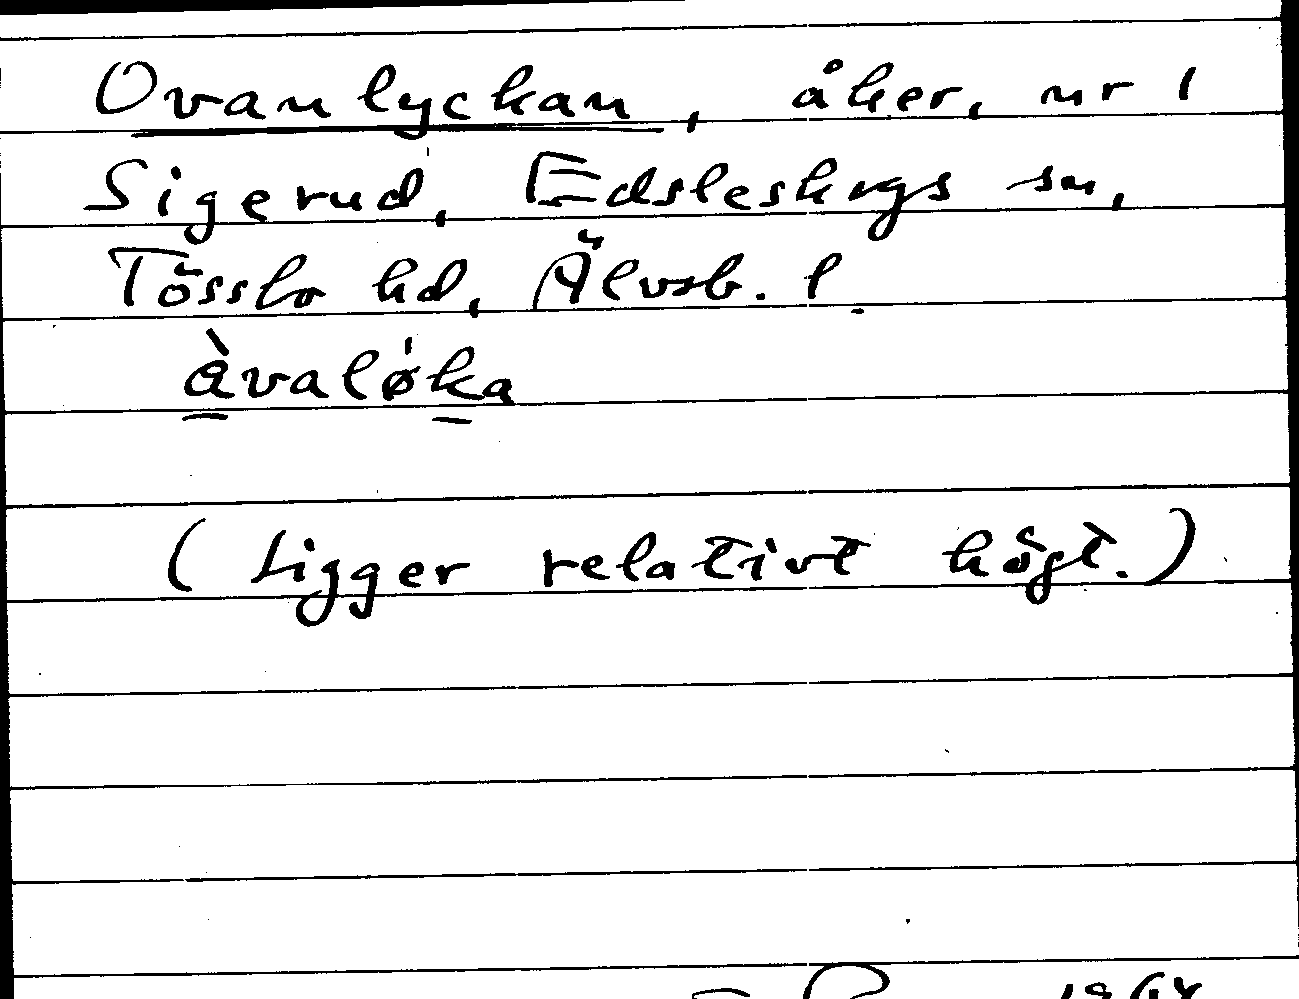 Ovanlyckan, åker, nr 1
Sigerud, Edsleskogs sn,
Tössbo hd, Älvsb. l.
àvalø̍ka
(Ligger relativt högt.)